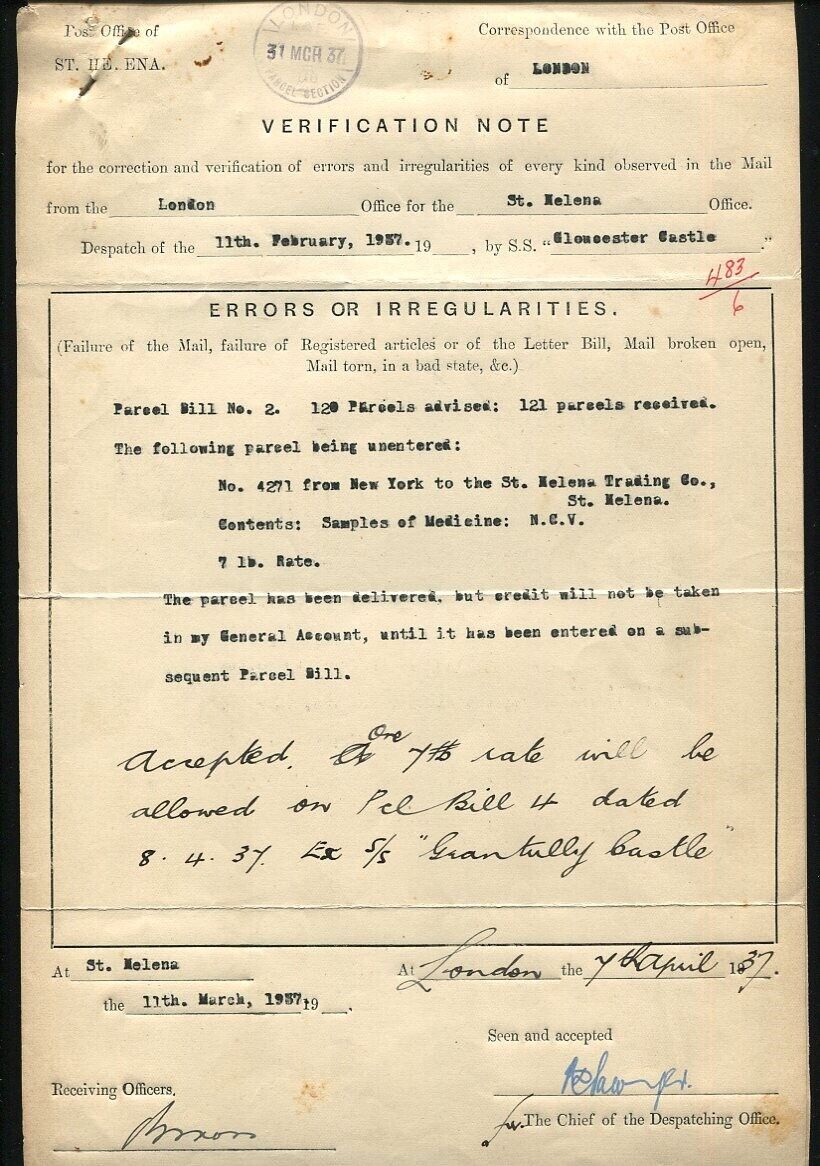 Post Office of
ST. HELENA.
LONDON
31 MCH 37
PARCEL SECTION
Correspondence with the Post Office
of LONDON
VERIFICATION NOTE
for the correction and verification of errors and irregularities of every kind observed in the Mail
from the London Office for the St. Helena Office.
Despatch of the 11th. February, 1937. 19 , by S.S. "Gloucester Castle"
483
6
ERRORS OR IRREGULARITIES.
(Failure of the Mail, failure of Registered articles or of the Letter Bill, Mail broken open,
Mail torn, in a bad state, &c.)
Parcel Bill No. 2. 120 Parcels advised: 121 parcels received.
The following parcel being unentered:
No. 4271 from New York to the St. Helena Trading Co.,
St. Helena.
Contents: Samples of Medicine: N.C.V.
7 lb. Rate.
The parcel has been delivered, but credit will not be taken
in my General Account, until it has been entered on a sub-
sequent Parcel Bill.
Accepted. One 7 lb rate will be
allowed on Pcl Bill 4 dated
8.4.37. Ex S/S "Grantully Castle"
At St. Helena
the 11th. March, 1937. 19 .
At London the 7th April 1937.
Seen and accepted
Receiving Officers.
for The Chief of the Despatching Office.